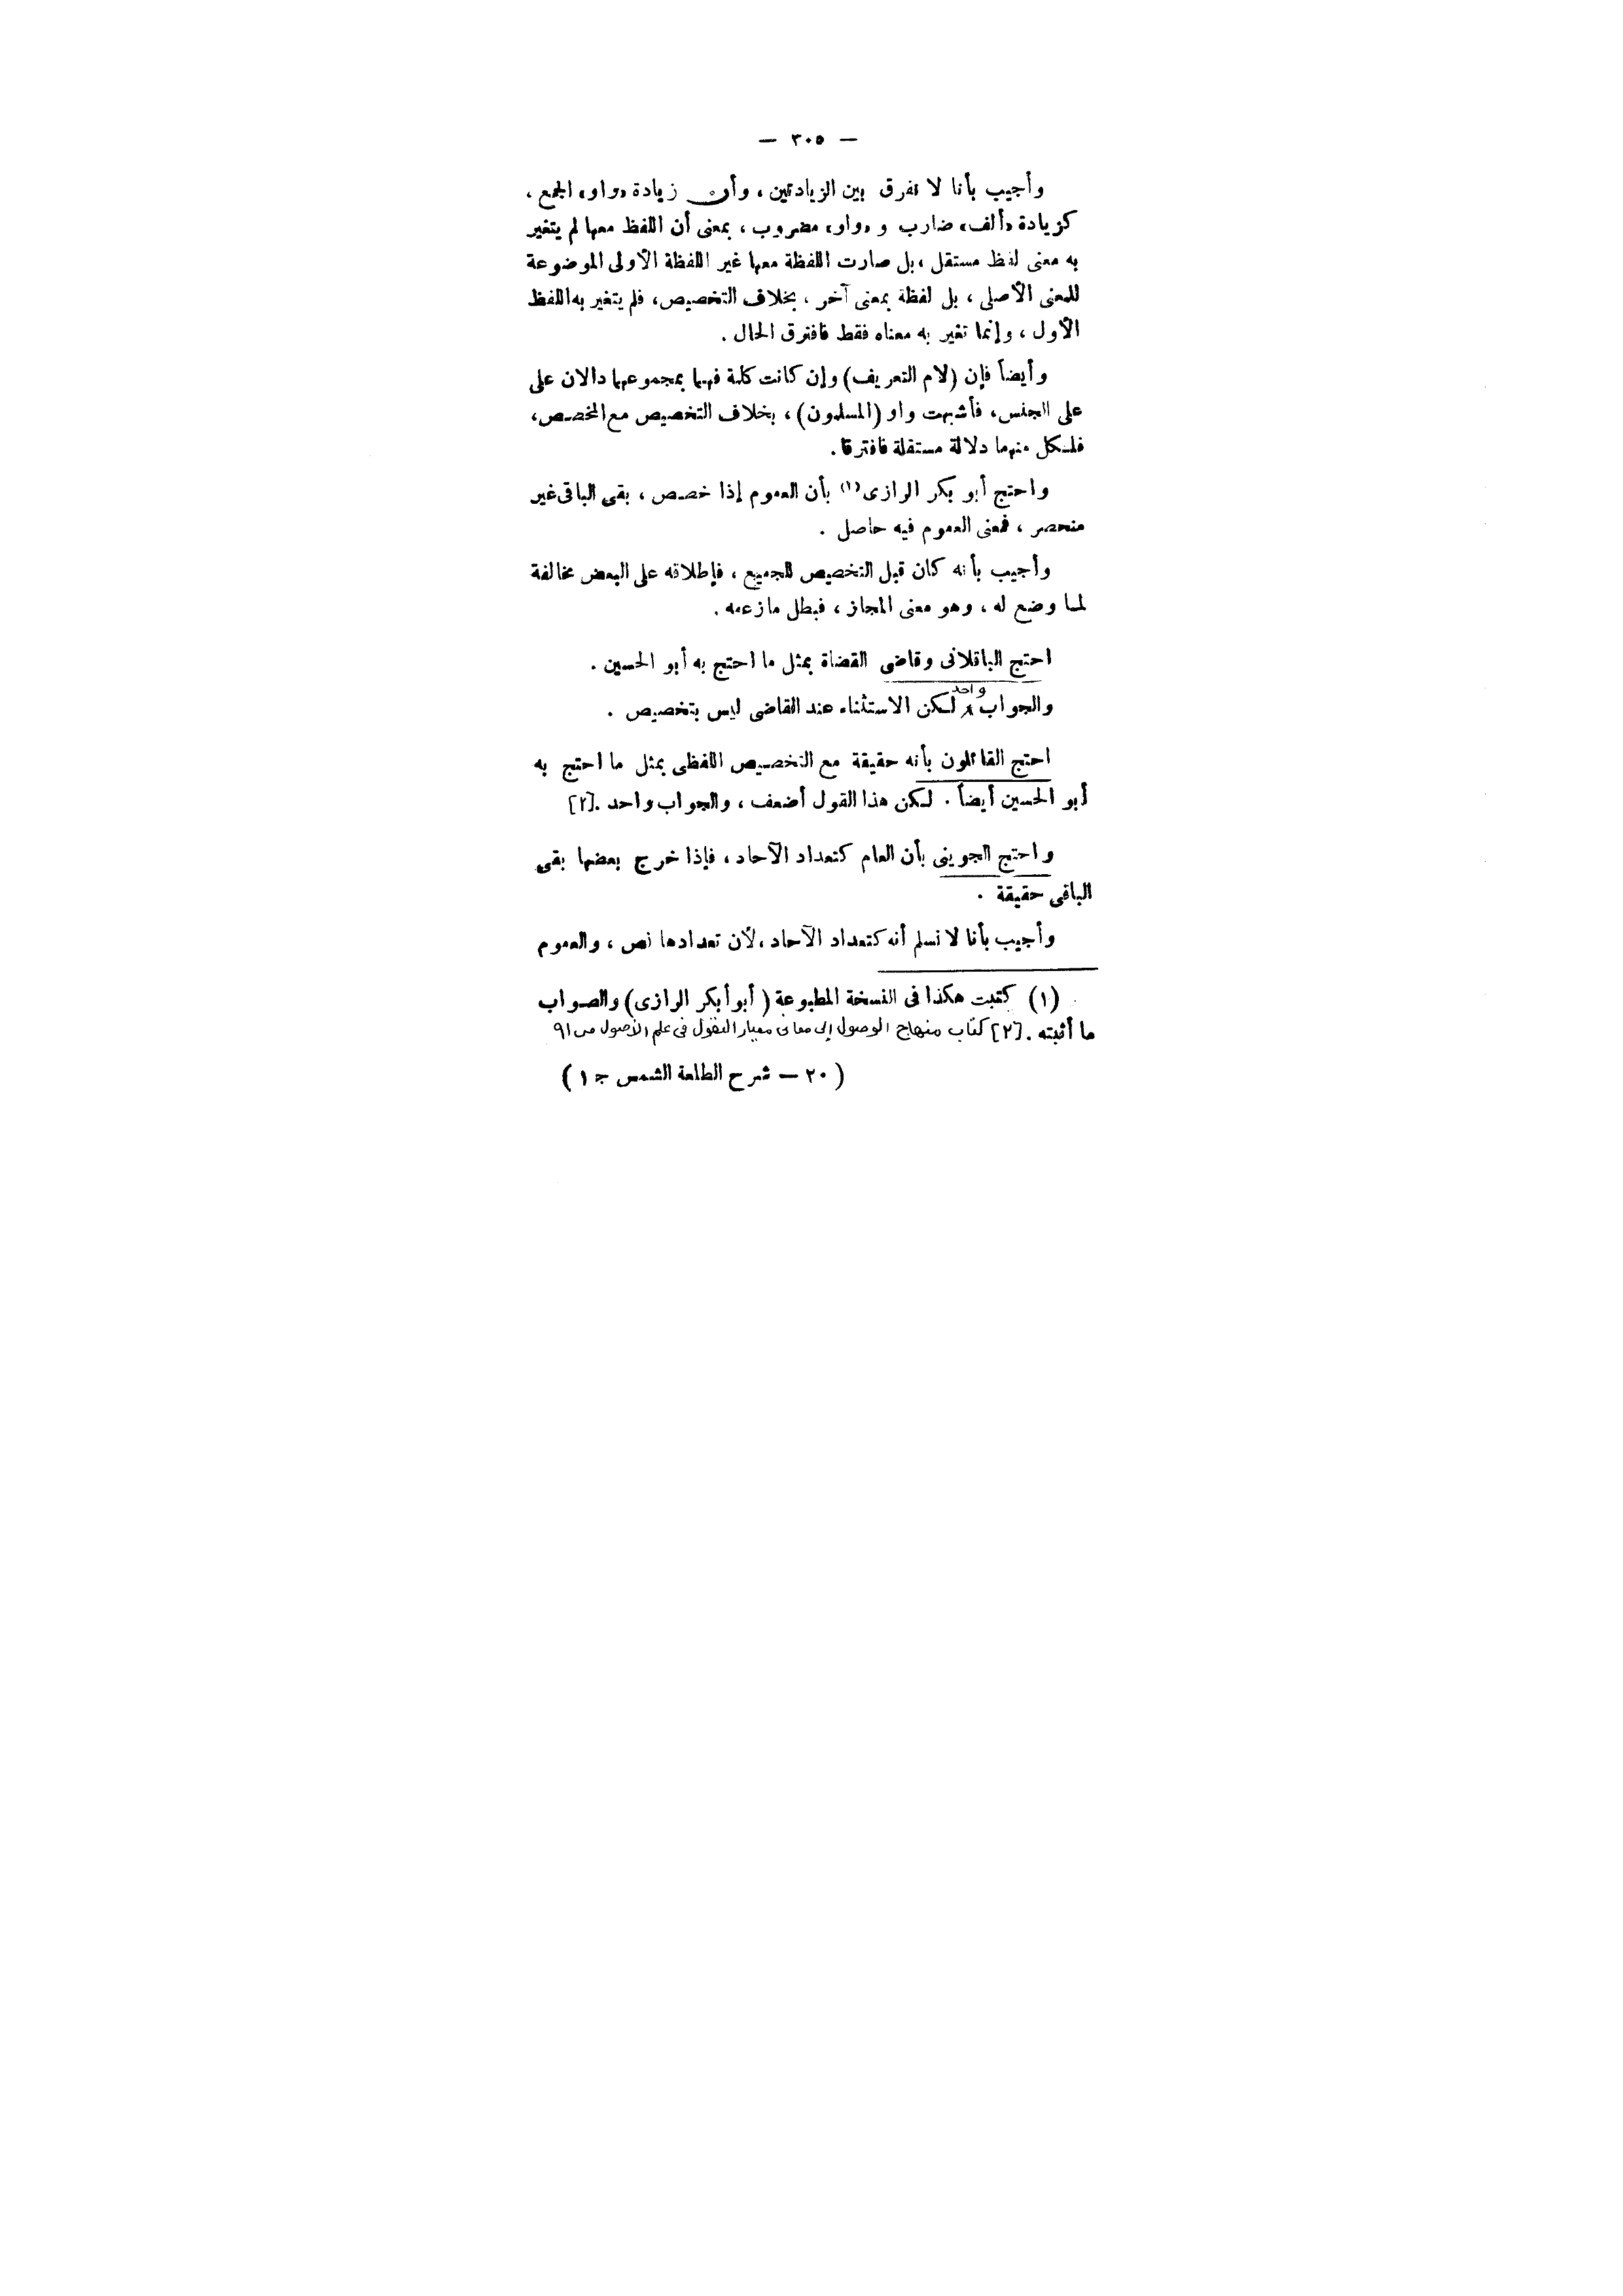 — ٣٠٥ —
وأجيب بأنا لا نفرق بين الزيادتين ، وأن زيادة «واو» الجمع ،
كزيادة «ألف» ضارب و «واو» مضروب ، بمعنى أن اللفظ معها لم يتغير
به معنى لفظ مستقل ، بل صارت اللفظة معها غير اللفظة الأولى الموضوعة
للمعنى الأصلى ، بل لفظة بمعنى آخر ، بخلاف التخصيص ، فلم يتغير به اللفظ
الأول ، وإنما تغير به معناه فقط فافترق الحال .
وأيضاً فإن (لام التعريف) وإن كانت كلمة فهما بمجموعهما دالان على
على الجنس ، فأشبهت واو (المسلمون) ، بخلاف التخصيص مع المخصص ،
فلكل منهما دلالة مستقلة فافترقا .
واحتج أبو بكر الرازى (١) بأن العموم إذا خصص ، بقى الباقى غير
منحصر ، فمعنى العموم فيه حاصل .
وأجيب بأنه كان قبل التخصيص للجميع ، فإطلاقه على البعض مخالفة
لما وضع له ، وهو معنى المجاز ، فبطل ما زعمه .
احتج الباقلانى وقاضى القضاة بمثل ما احتج به أبو الحسين .
والجواب واحد لكن الاستثناء عند القاضى ليس بتخصيص .
احتج القائلون بأنه حقيقة مع التخصيص اللفظى بمثل ما احتج به
أبو الحسين أيضاً . لكن هذا القول أضعف ، والجواب واحد .[٢]
واحتج الجوينى بأن العام كتعداد الآحاد ، فإذا خرج بعضها بقى
الباقى حقيقة .
وأجيب بأنا لا نسلم أنه كتعداد الآحاد ، لأن تعدادها نص ، والعموم
(١) كتبت هكذا فى النسخة المطبوعة ( أبو أبكر الرازى) والصواب
ما أثبته . [٢] كتاب منهاج الوصول إلى معانى معيار العقول فى علم الأصول ص ٩١
( ٢٠ — شرح الطلعة الشمس ج ١ )